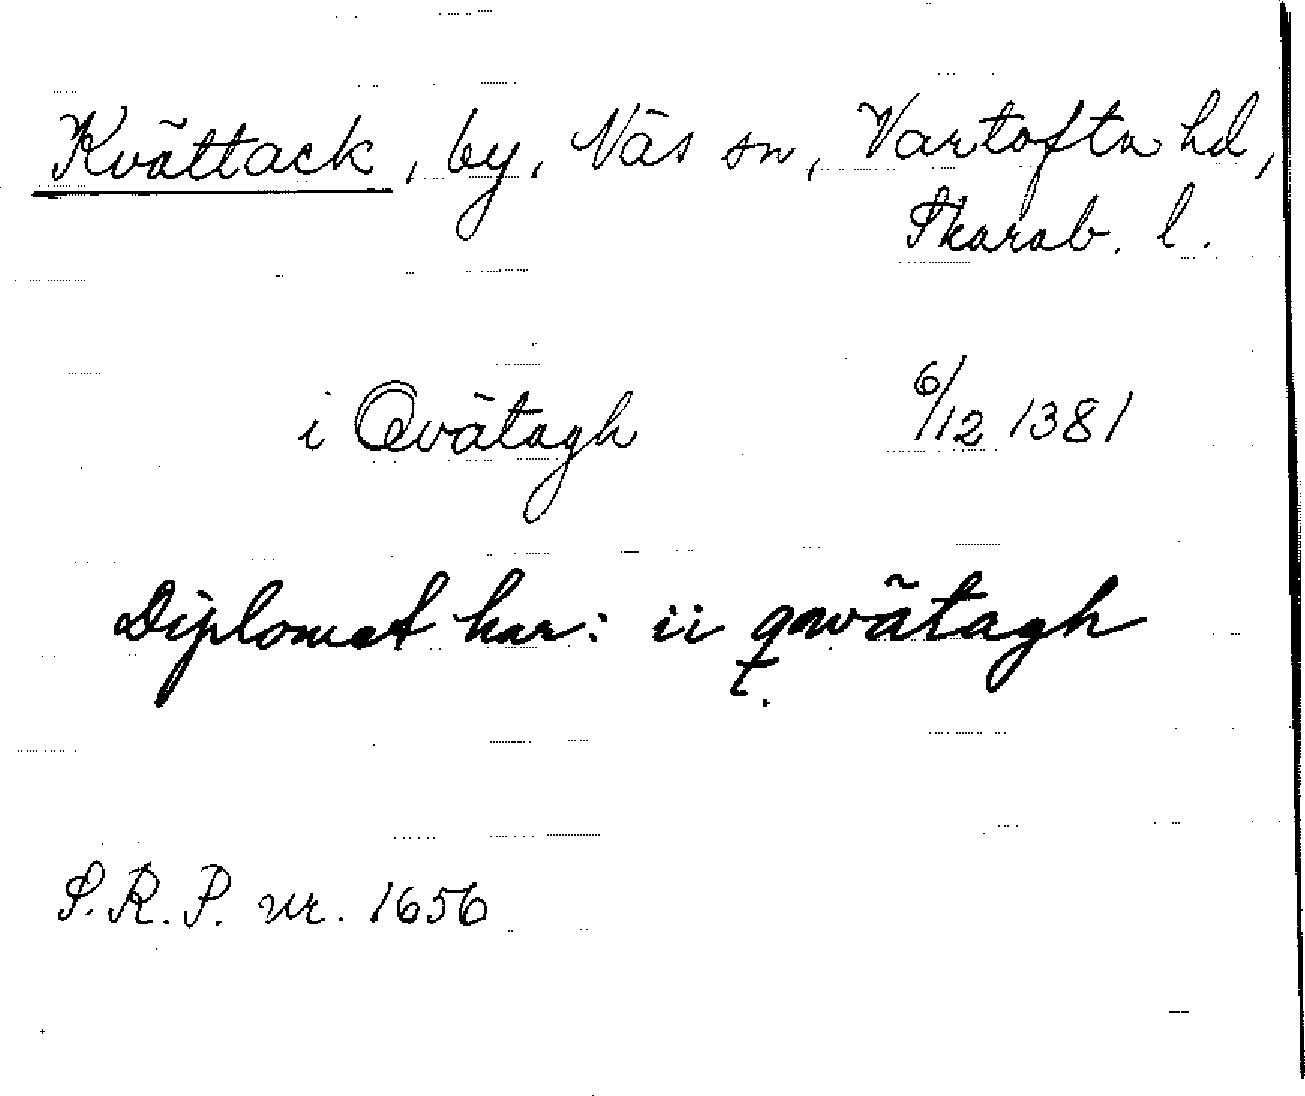 Kvättack, by, Näs sn, Vartofta hd,
Skarab. l.
i Qvätagh 6/12 1381
Diplomet har: ii qwätagh
t.
S.R.P. nr. 1656